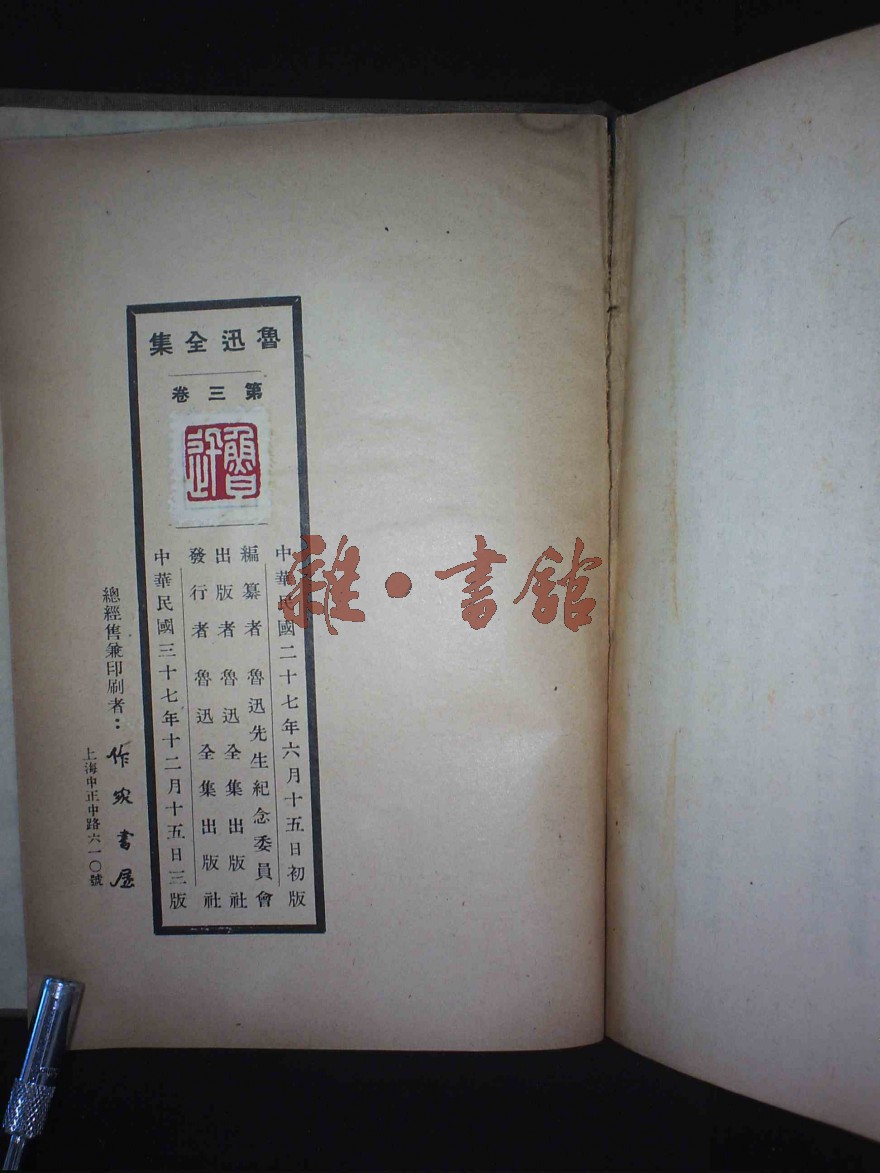 魯迅全集
第三卷
魯迅
中華民國二十七年六月十五日初版
編纂者 魯迅先生紀念委員會
出版者 魯迅全集出版社
發行者 魯迅全集出版社
中華民國三十七年十二月十五日三版
總經售兼印刷者：作家書屋
上海中正中路六一〇號
雜·書館